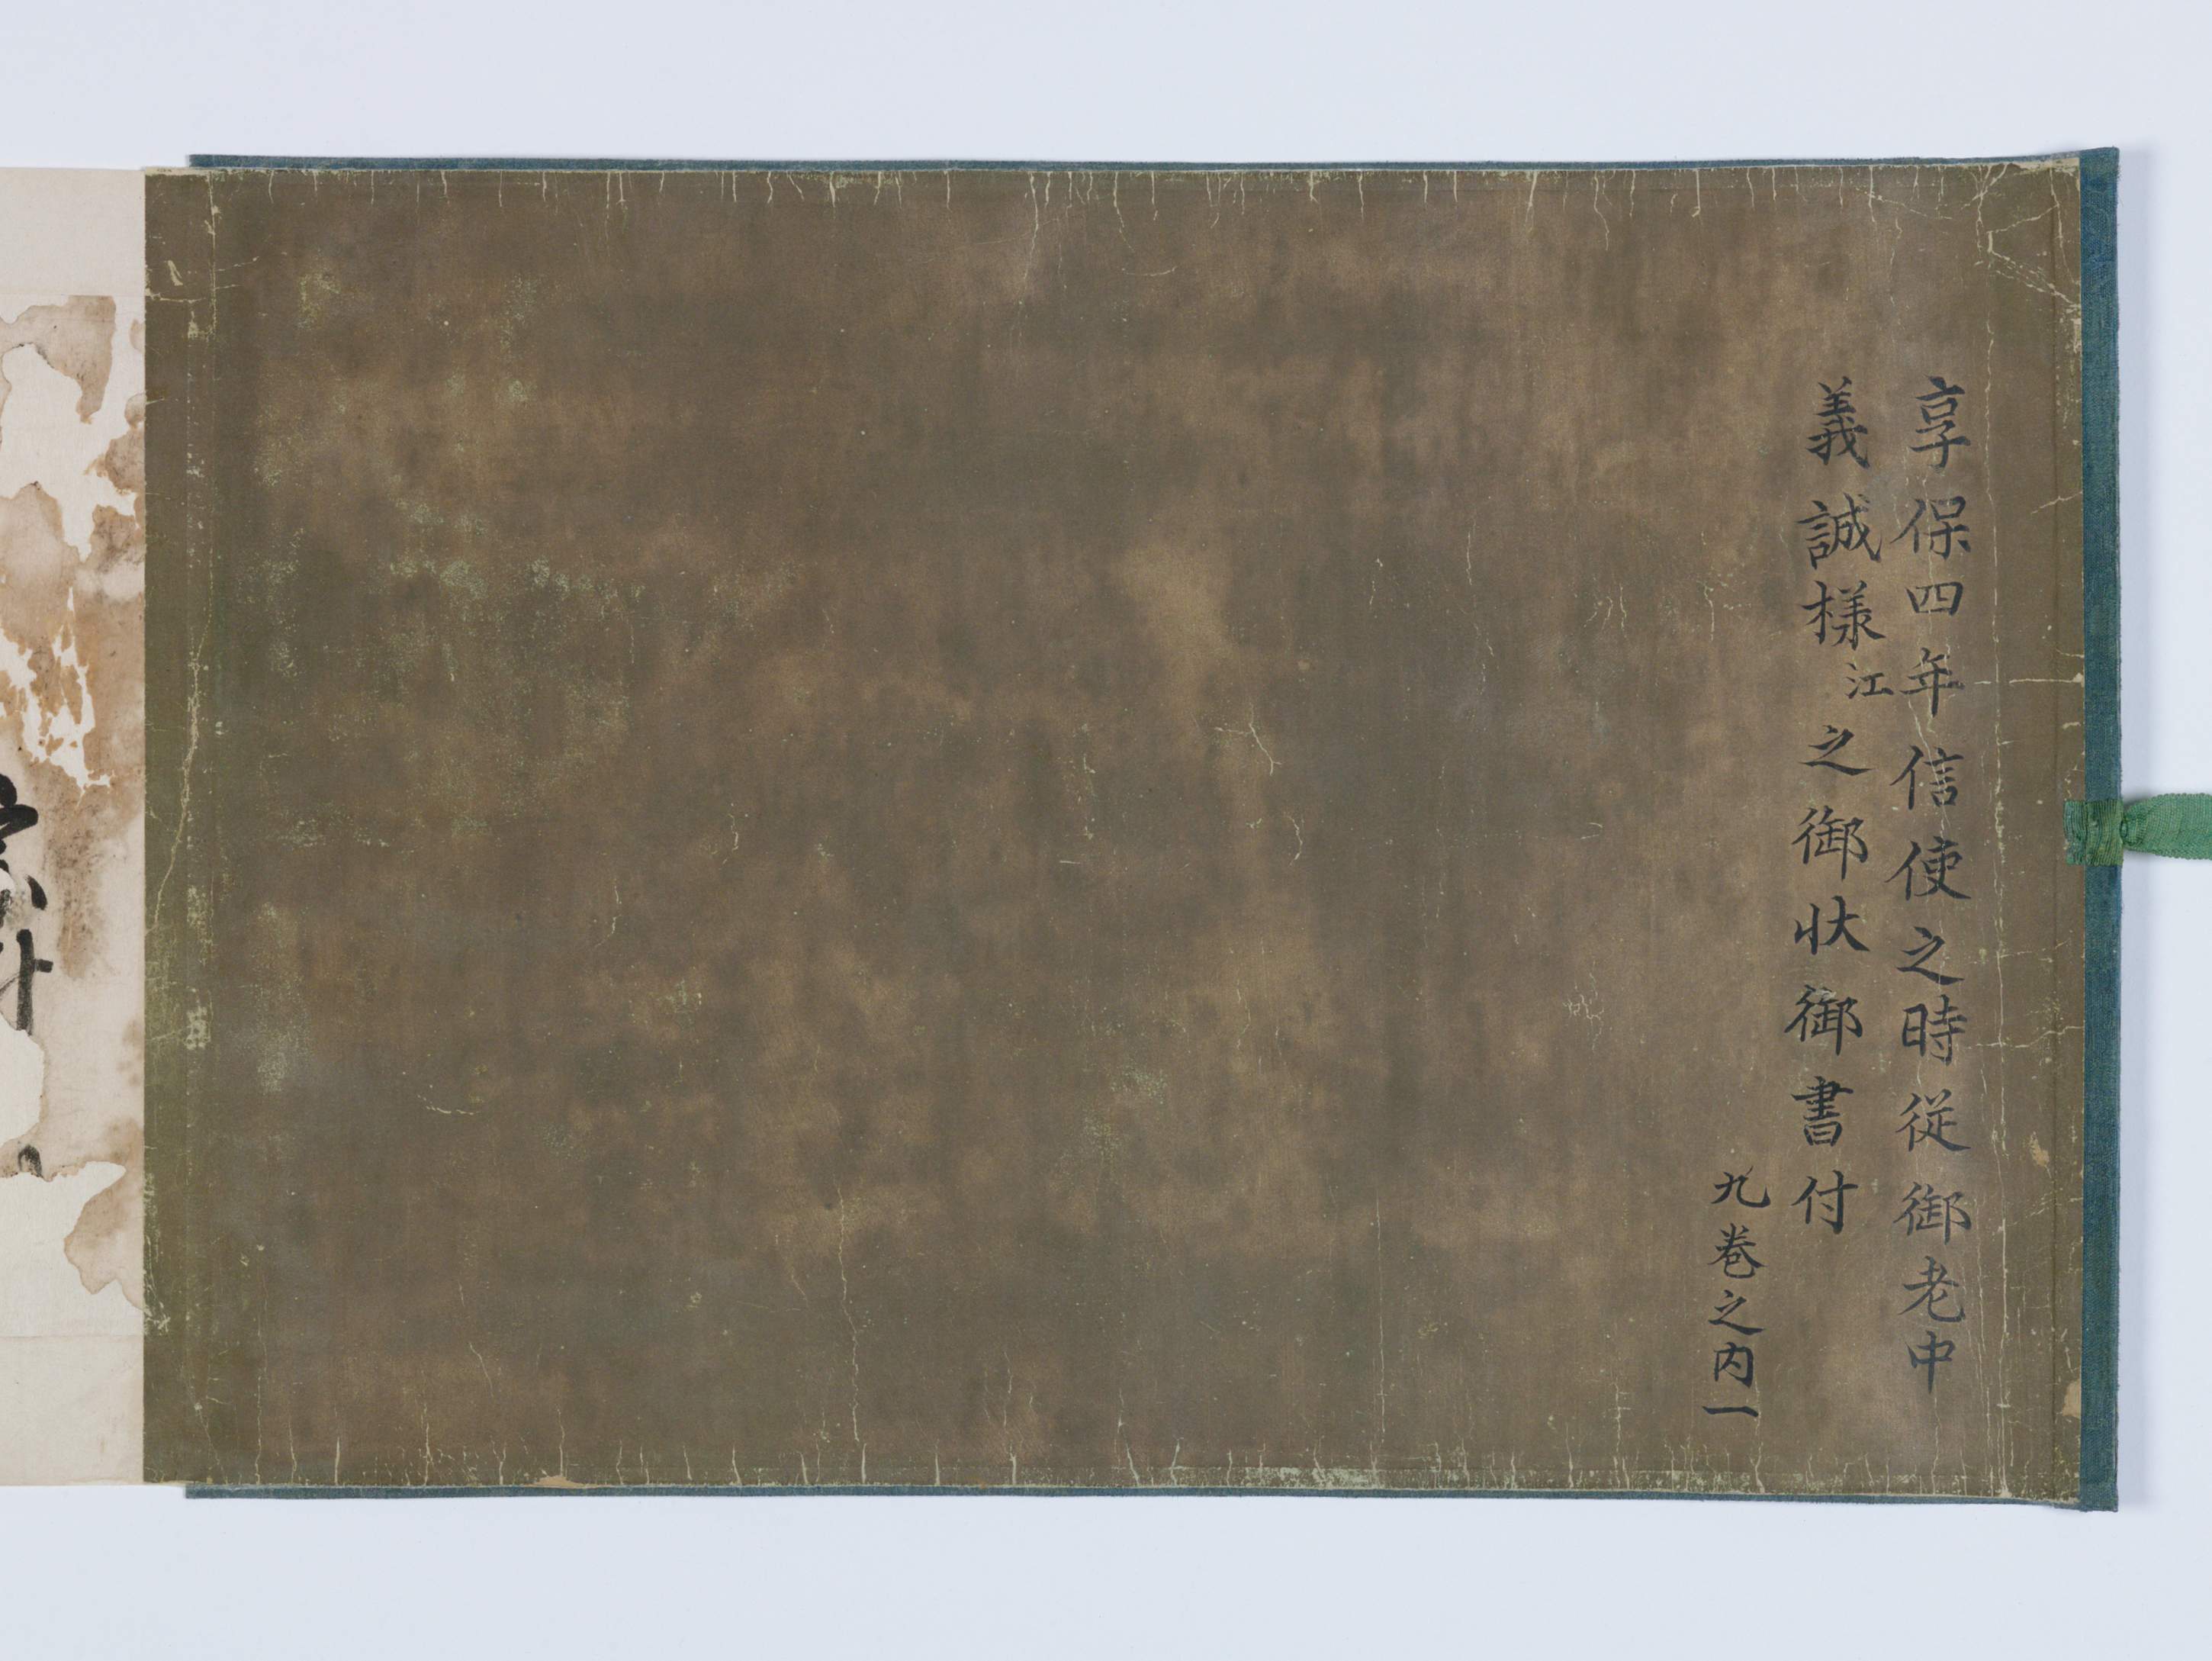 享保四年信使之時従御老中
義誠様江之御状御書付
九巻之内一